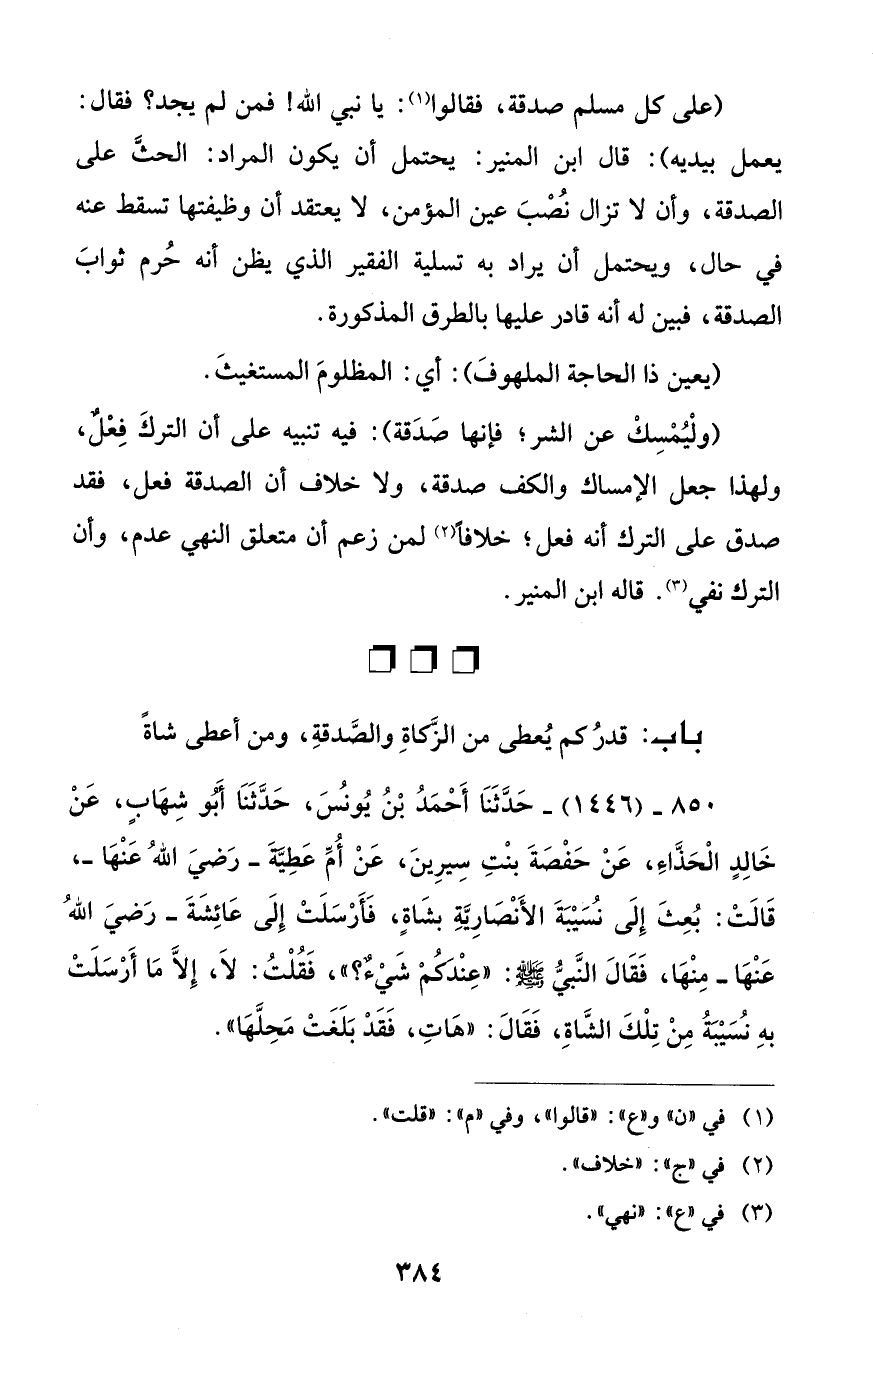 (على كل مسلم صدقة، فقالوا(١): يا نبي الله! فمن لم يجد؟ فقال:
يعمل بيديه): قال ابن المنير: يحتمل أن يكون المراد: الحثَّ على
الصدقة، وأن لا تزال نُصْبَ عين المؤمن، لا يعتقد أن وظيفتها تسقط عنه
في حال، ويحتمل أن يراد به تسلية الفقير الذي يظن أنه حُرم ثوابَ
الصدقة، فبين له أنه قادر عليها بالطرق المذكورة.
(يعين ذا الحاجة الملهوفَ): أي: المظلومَ المستغيثَ.
(ولْيُمْسِكْ عن الشر؛ فإنها صَدَقة): فيه تنبيه على أن التركَ فِعْلٌ،
ولهذا جعل الإمساك والكف صدقة، ولا خلاف أن الصدقة فعل، فقد
صدق على الترك أنه فعل؛ خلافاً(٢) لمن زعم أن متعلق النهي عدم، وأن
الترك نفي(٣). قاله ابن المنير.
باب: قدرُ كم يُعطى من الزَّكاةِ والصَّدقةِ، ومن أعطى شاةً
٨٥٠ ـ (١٤٤٦) ـ حَدَّثَنَا أَحْمَدُ بْنُ يُونُسَ، حَدَّثَنَا أَبُو شِهَابٍ، عَنْ
خَالِدٍ الْحَذَّاءِ، عَنْ حَفْصَةَ بِنْتِ سِيرِينَ، عَنْ أُمِّ عَطِيَّةَ ـ رَضيَ اللهُ عَنْهَا ـ،
قَالَتْ: بُعِثَ إِلَى نُسَيْبَةَ الأَنْصَارِيَّةِ بِشَاةٍ، فَأَرْسَلَتْ إِلَى عَائِشَةَ ـ رَضيَ اللهُ
عَنْهَا ـ مِنْهَا، فَقَالَ النَّبيُّ ﷺ: «عِنْدَكُمْ شَيْءٌ؟»، فَقُلْتُ: لاَ، إِلاَّ مَا أَرْسَلَتْ
بِهِ نُسَيْبَةُ مِنْ تِلْكَ الشَّاةِ، فَقَالَ: «هَاتِ، فَقَدْ بَلَغَتْ مَحِلَّهَا».
(١) في «ن» و«ع»: «قالوا»، وفي «م»: «قلت».
(٢) في «ج»: «خلاف».
(٣) في «ع»: «نهي».
٣٨٤